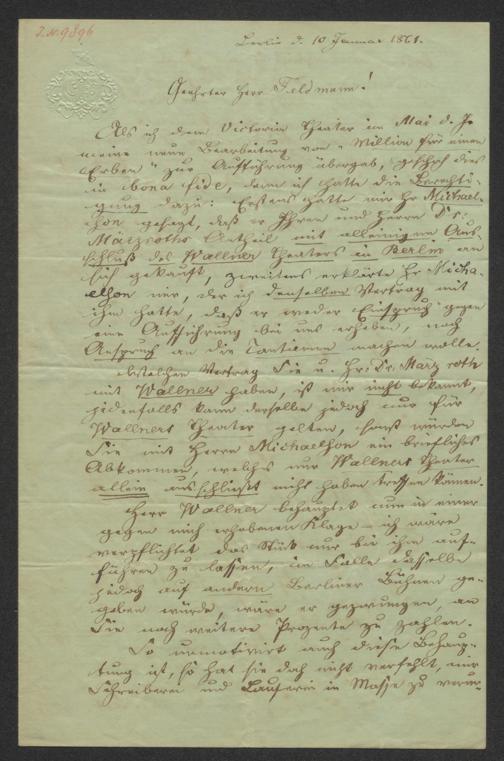 J.N. 9896
Berlin d. 10 Januar 1861.
Geehrter Herr Feldmann!
Als ich dem Victoria Theater im Mai d. J.
meine neue Bearbeitung von "Million für einen
Erben" zur Aufführung übergab, geschah dies
in bona fide, denn ich hatte die Berechti-
gung dazu: Erstens hatte mir Hr Michael-
son gesagt, daß er Ihren und Herrn Dr.
Märzroths Antheil mit alleinigem Aus-
schluß des Wallner Theaters in Berlin an
sich gekauft, zweitens erklärte Hr. Micha-
elson mir, der ich denselben Vertrag mit
ihm hatte, daß er weder Einspruch gegen
eine Aufführung bei uns erheben, noch
Anspruch an die Tantieme machen wolle.
Welchen Vertrag Sie u. Hr. Dr. Märzroth
mit Wallner haben, ist mir nicht bekannt,
jedenfalls kann derselbe jedoch nur für
Wallners Theater gelten, sonst würden
Sie mit Herrn Michaelson ein briefliches
Abkommen, welches nur Wallners Theater
allein ausschließt nicht haben treffen können.
Herr Wallner behauptet nun in einer
gegen mich erhobenen Klage – ich wäre
verpflichtet das Stück nur bei ihm auf-
führen zu lassen, im Falle dasselbe
jedoch auf andern Berliner Bühnen ge-
geben würde, wäre er gezwungen, an
Sie noch weitere Prozente zu zahlen.
So unmotivirt auch diese Behaup-
tung ist, so hat sie doch nicht verfehlt, mir
Schreiberei und Lauferei in Masse zu verur-